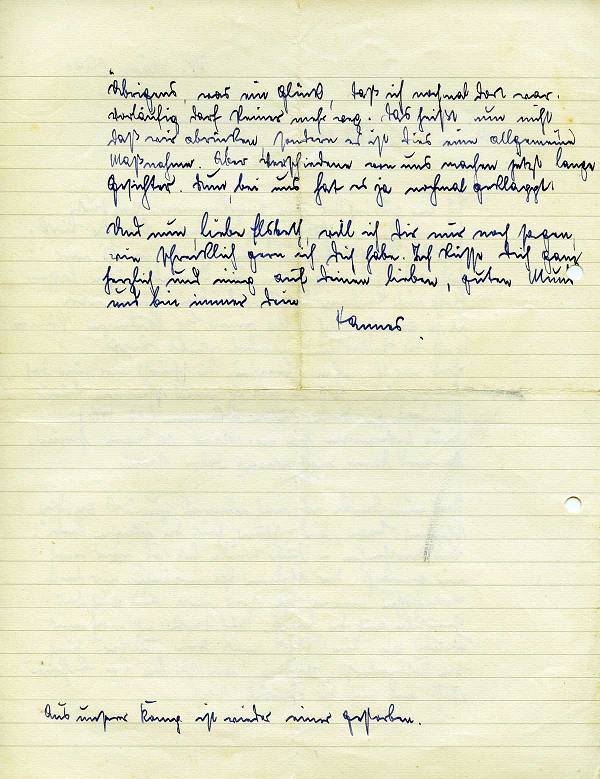 Übrigens, was ein Glück, daß ich nochmal dort war.
Vorläufig darf keiner mehr weg. Das heißt nun nicht
daß wir abrücken, sondern es ist dies eine allgemeine
Maßnahme. Aber verschiedene von uns machen jetzt lange
Gesichter. Dum, bei uns hat es ja nochmal geklappt.
Und nun, liebe Elsbeth, will ich dir nur noch sagen,
wie schrecklich gern ich Dich habe. Ich küsse Dich ganz
herzlich und innig auf Deinen lieben, guten Mund
und bin immer dein
Hannes.
Aus unserer Komp. ist wieder einer gestorben.